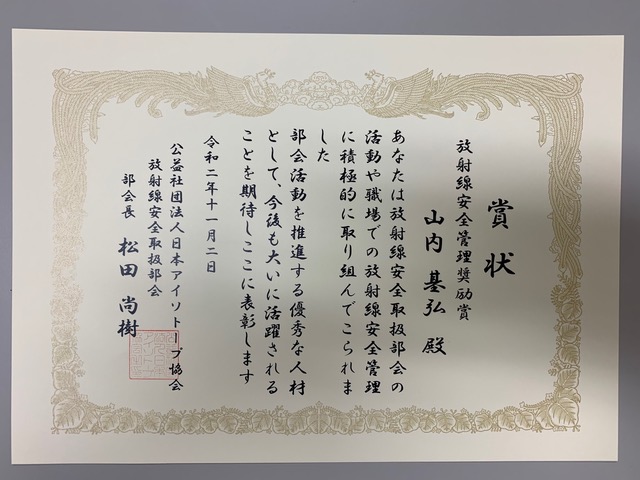 賞状
放射線安全管理奨励賞
山内 基弘 殿
あなたは放射線安全取扱部会の
活動や職場での放射線安全管理
に積極的に取り組んでこられま
した
部会活動を推進する優秀な人材
として、今後も大いに活躍される
ことを期待しここに表彰します
令和二年十一月二日
公益社団法人日本アイソトープ協会
放射線安全取扱部会
部会長 松田 尚樹